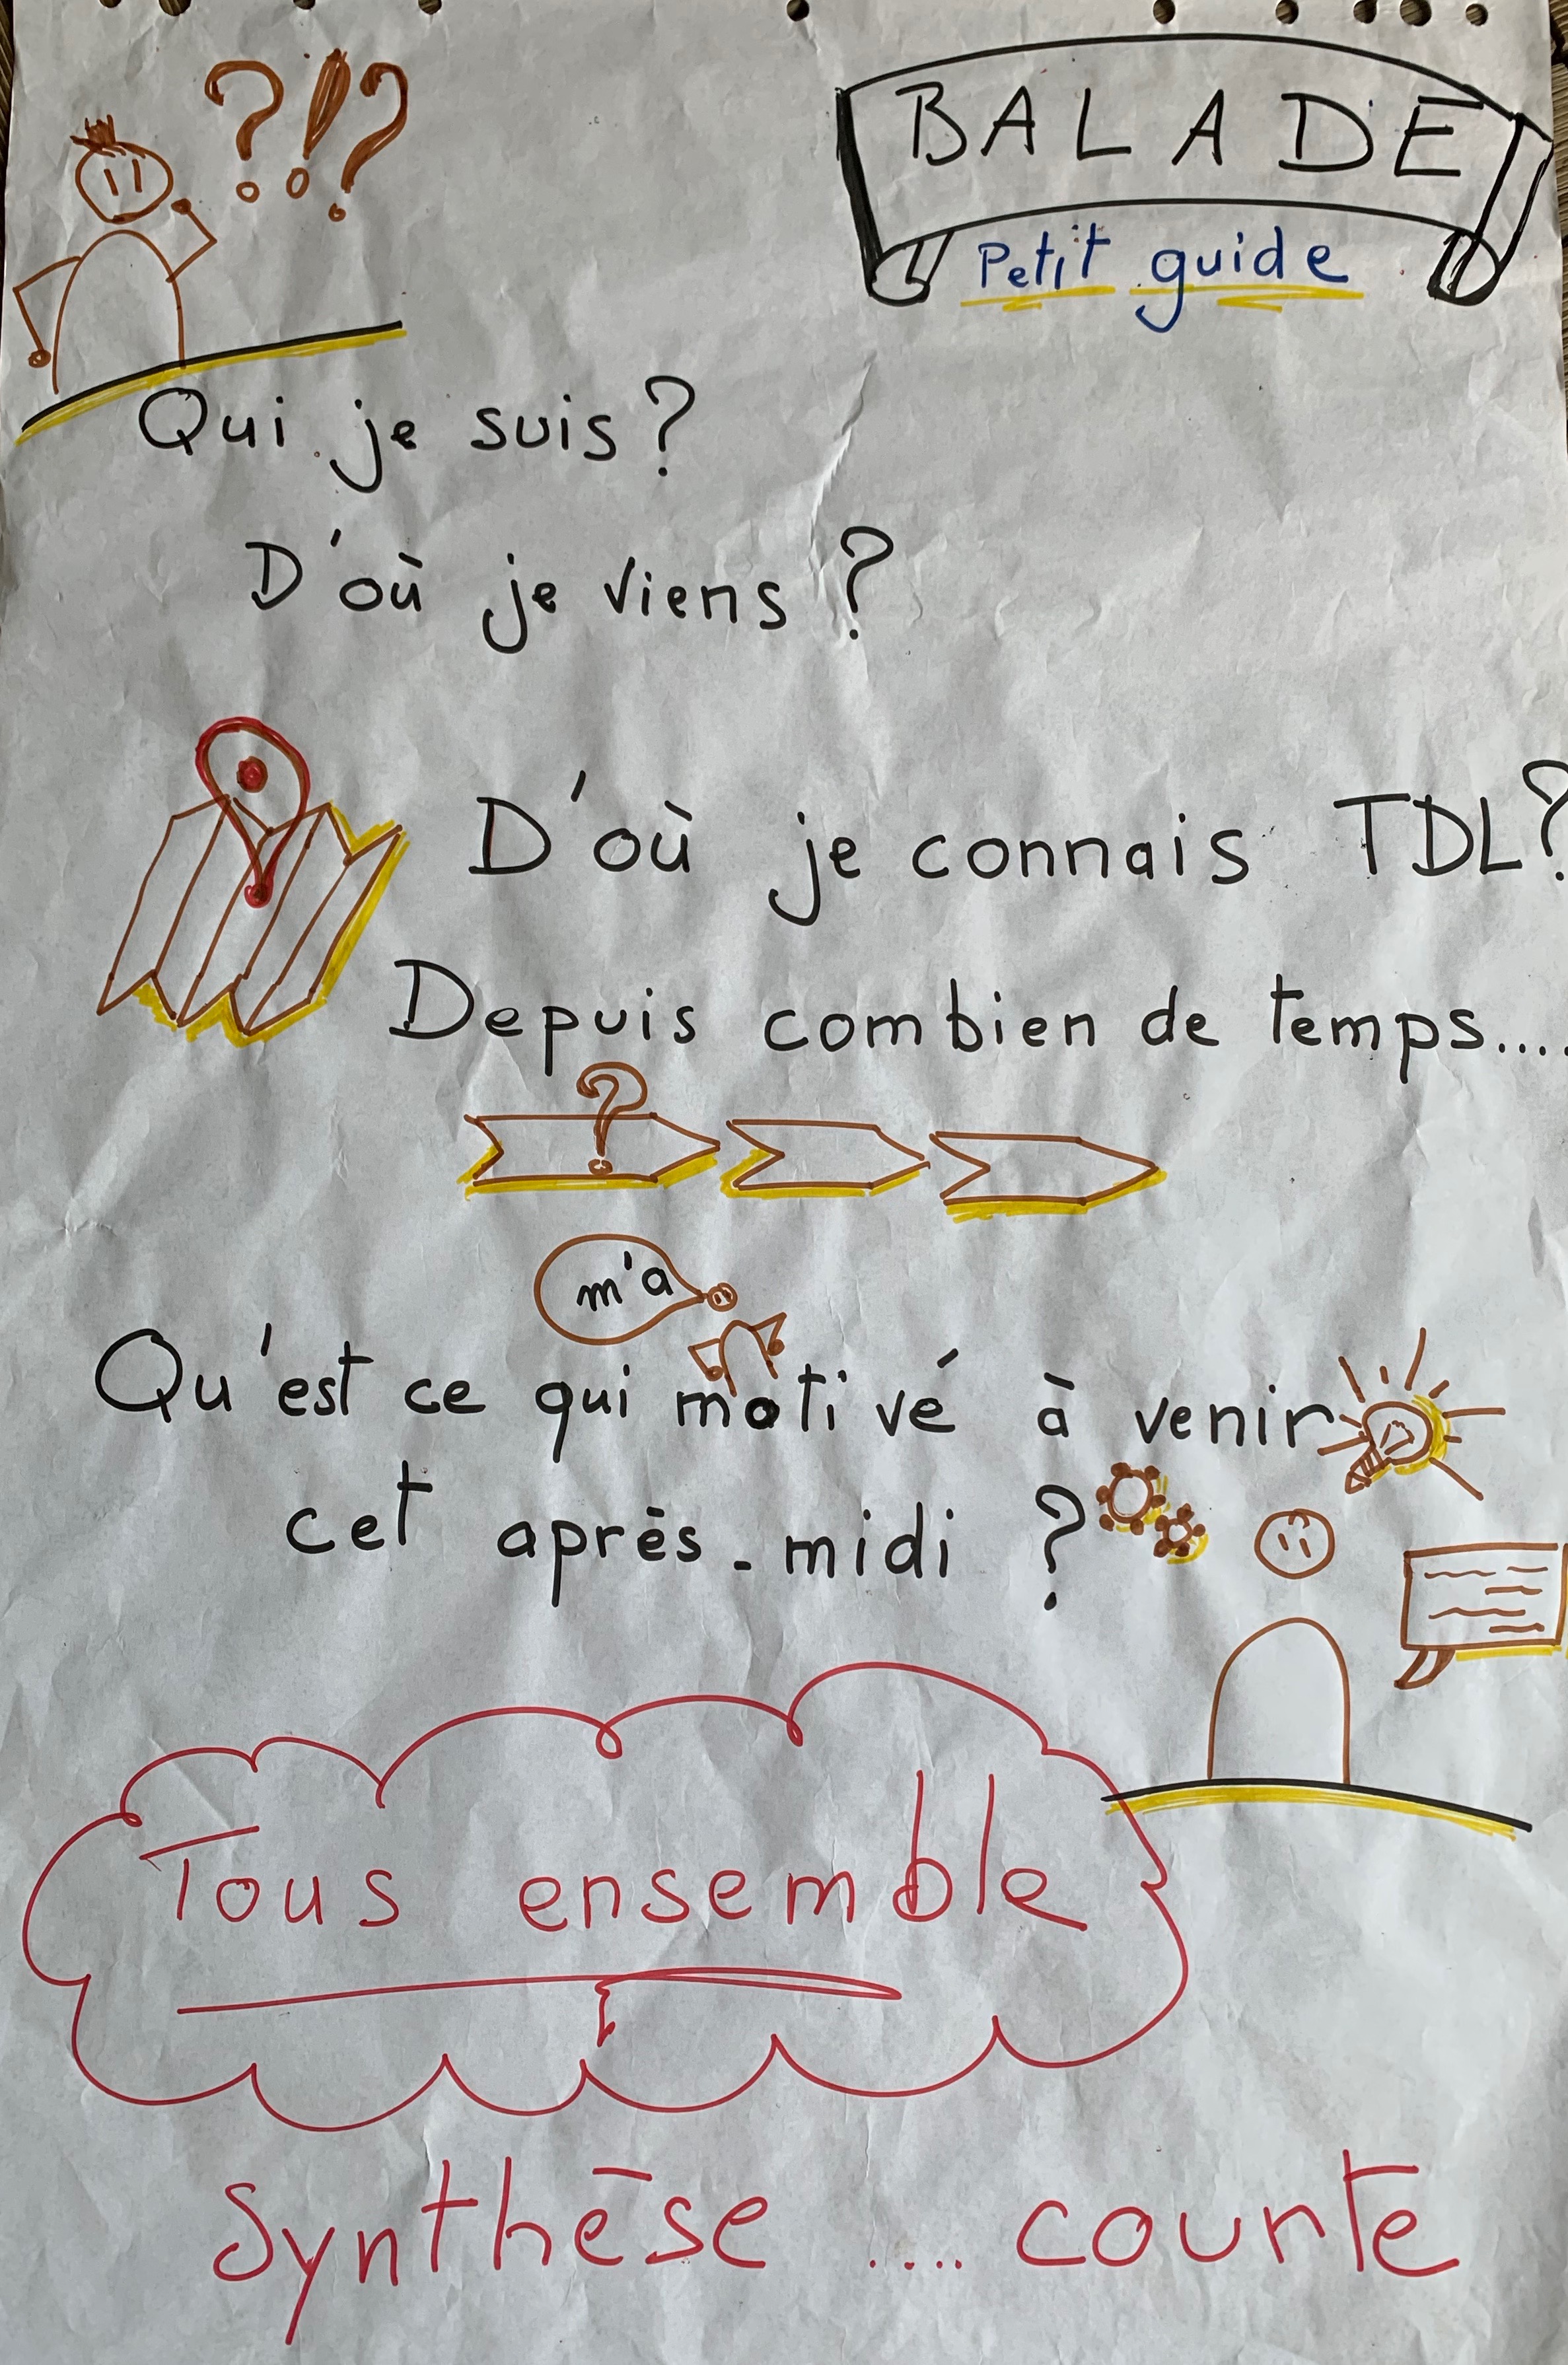 ?!?
BALADE
Petit guide
Qui je suis?
D'où je viens?
D'où je connais TDL?
Depuis combien de temps....
?
m'a
Qu'est ce qui motivé à venir
cet après-midi ?
Tous ensemble
Synthèse .... courte